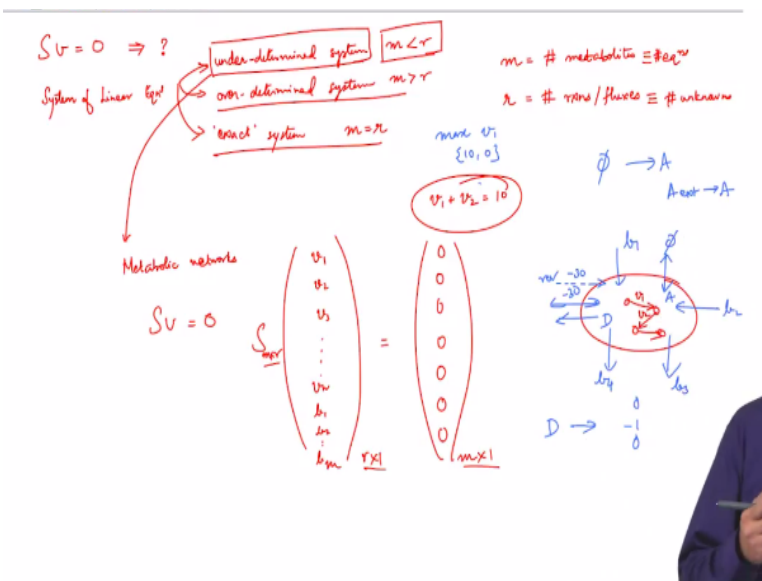 Sv = 0 ⇒ ?
System of Linear Eqns
under-determined system m < r
over-determined system m > r
'exact' system m = r
m = # metabolites ≡ # eqns
r = # rxns/fluxes ≡ # unknowns
max v1
{10, 0}
v1 + v2 = 10
ϕ → A
A ext → A
Metabolic networks
Sv = 0
S mxr
v1
v2
v3
⋮
vn
b1
b2
⋮
bm
r×1
=
0
0
0
0
0
0
0
m×1
b1
ϕ
rev -30
-30
A
b2
v1
v2
D
b4
b3
D →
0
-1
0